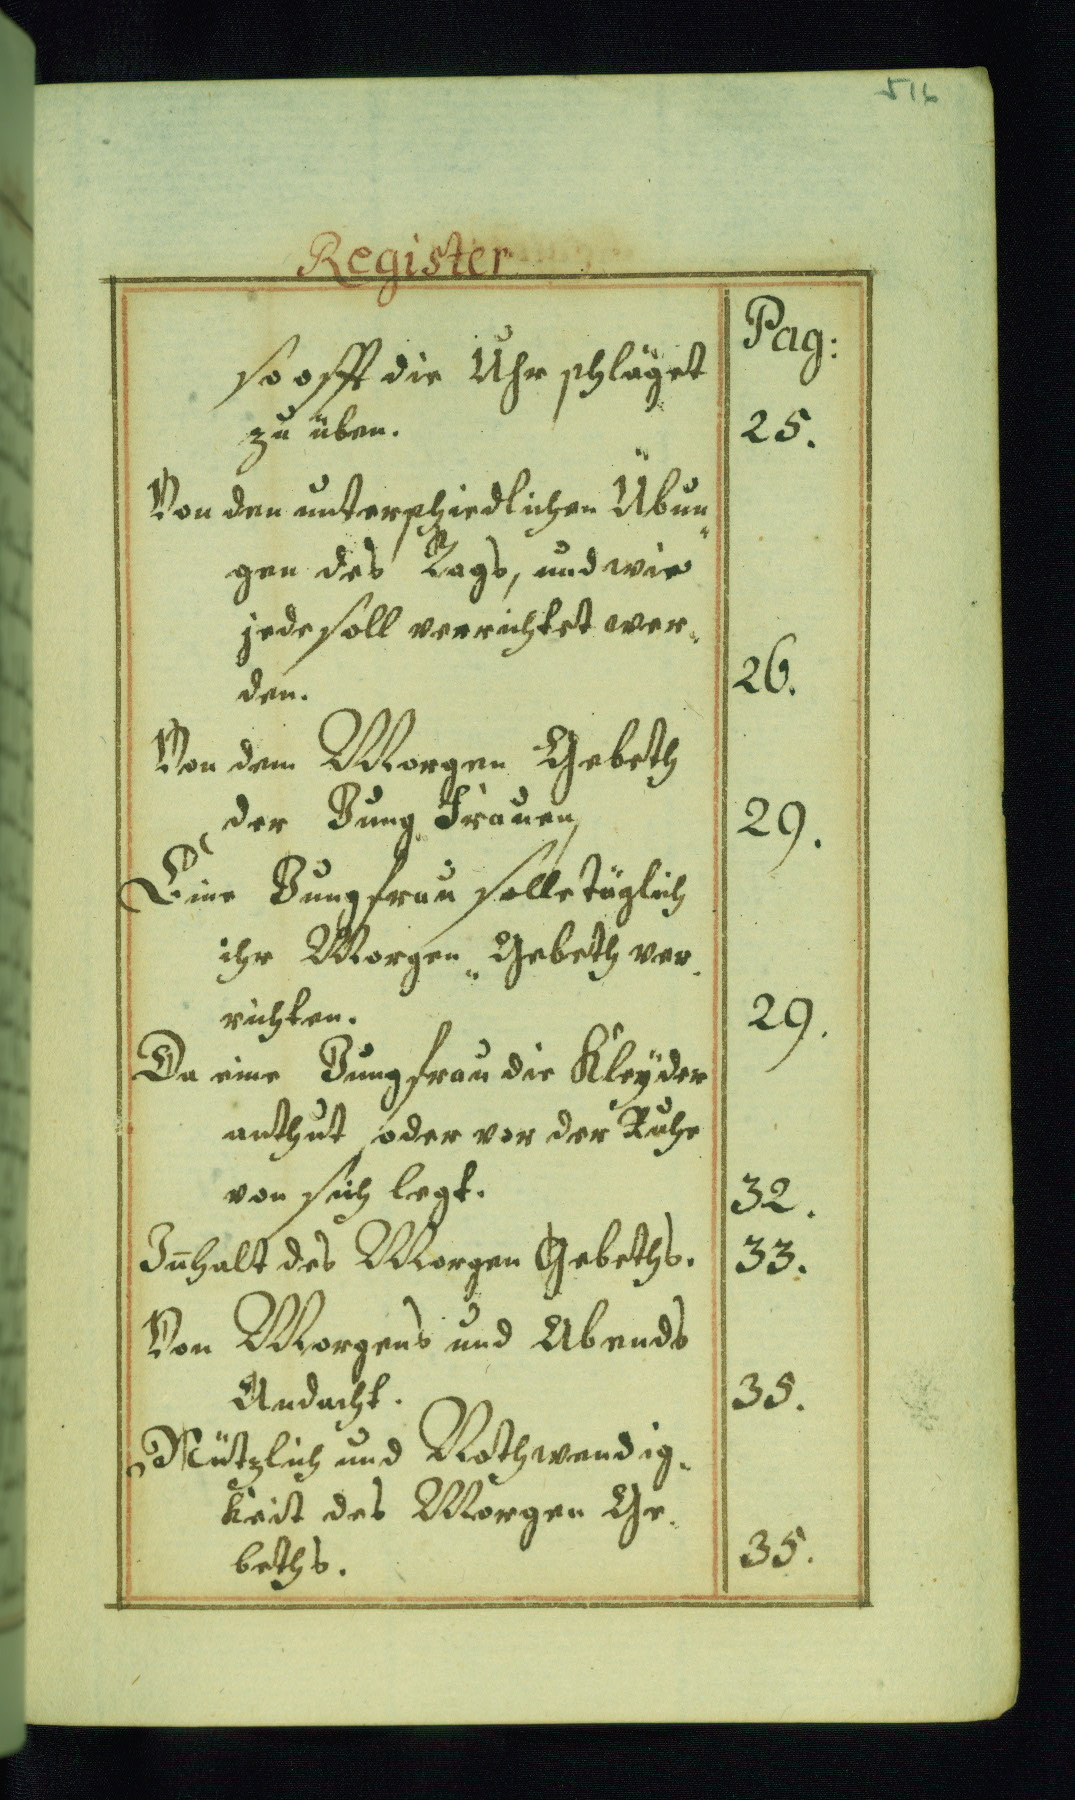 516
Register
Pag:
so offt die Uhr schläget
zu üben. 25.
Von den unterschiedlichen Übun„
gen des Tags, und wie
jede soll verrichtet wer„
den. 26.
Von dem Morgen Gebeth
der Jung Frauen, 29.
Eine Jungfrau solle täglich
ihr Morgen„ Gebeth ver„
richten. 29.
Da eine Jungfrau die Kleyder
anthut, oder vor der Ruhe
von sich legt. 32.
Iñhalt des Morgen Gebeths. 33.
Von Morgens und Abends
Andacht. 35.
Nützlich und Nothwendig„
keit des Morgen Ge„
beths. 35.